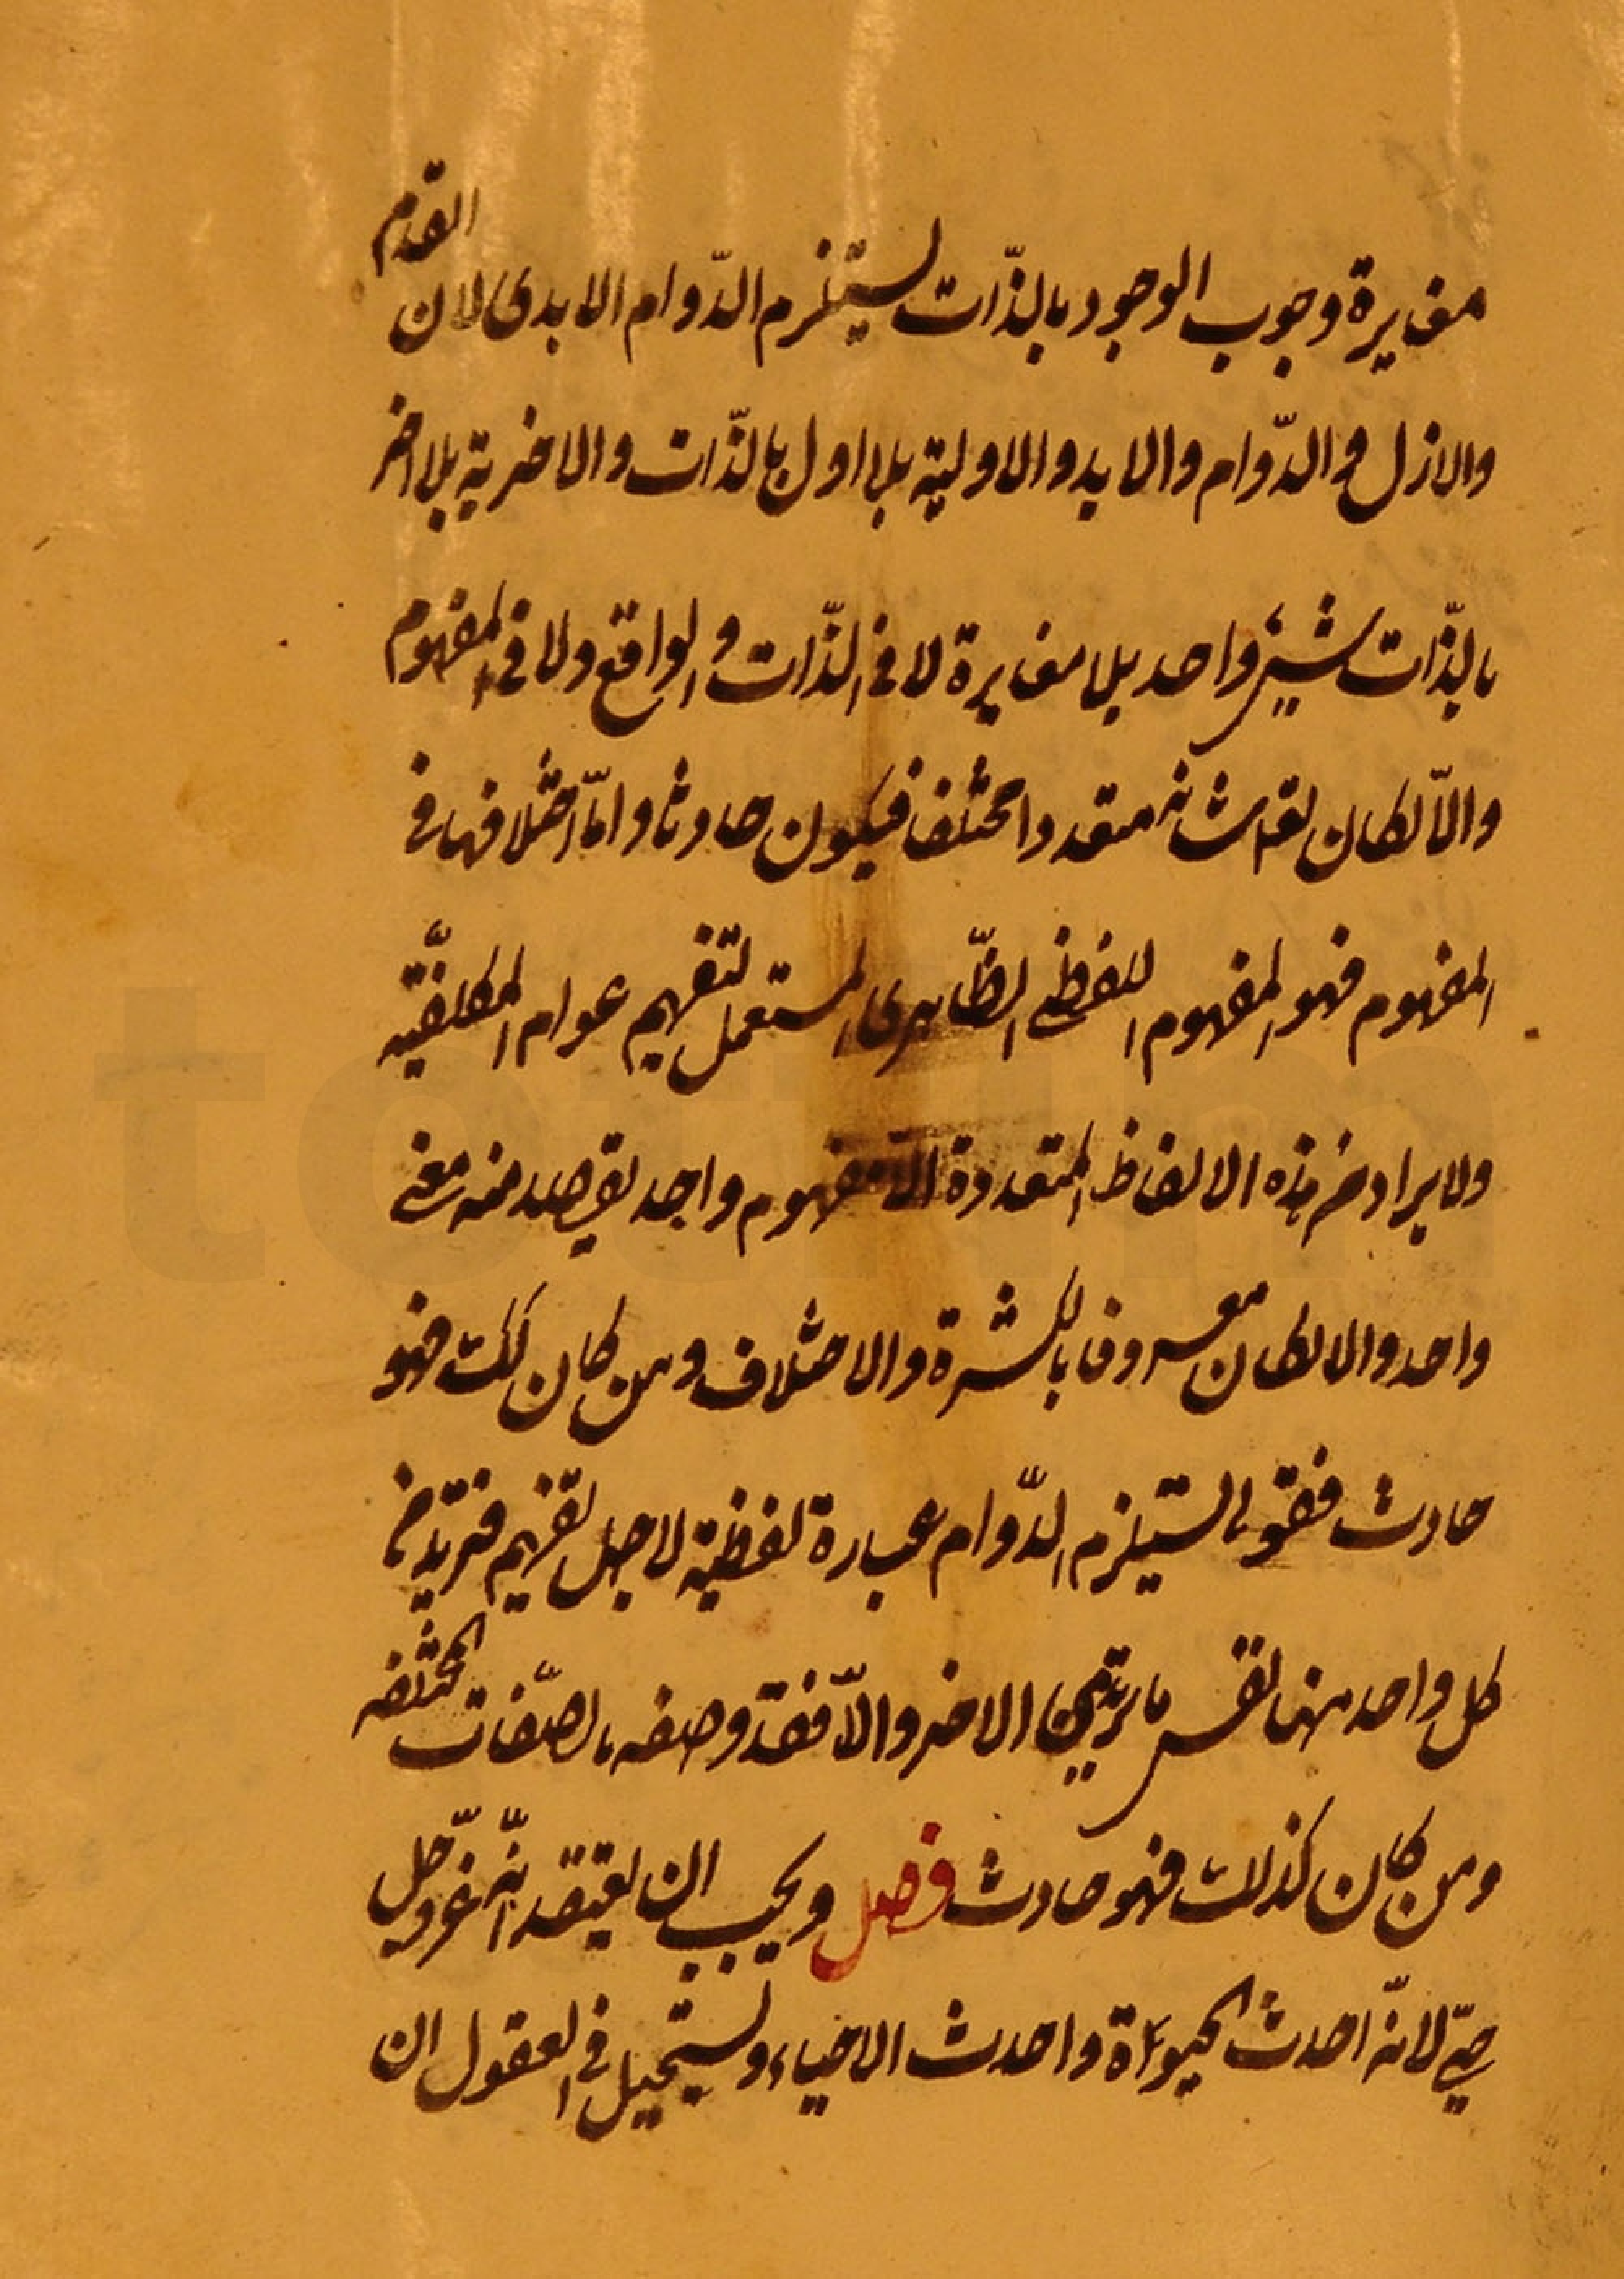 مغايرة وجوب الوجود بالذّات يستلزم الدّوام الابدى لان القدم
والازل و الدّوام والابد والاولية بلا اول بالذّات والاخرية بلا اخر
بالذّات شيئ واحد بلا مغايرة لا فى الذّات و الواقع ولا فى المفهوم
والاّ لكان لقاشانه متعددا مختلفا فيكون حادثا و امّا اختلافها فى
المفهوم فهو المفهوم اللفظى الظّاهرى المستعمل لتفهيم عوام المكلّفين
ولا يراد من هذه الالفاظ المتعددة الاّ مفهوم واحد يقصد منه معنى
واحد والا لكان معروفا بالكثرة والاختلاف ومن كان كك فهو
حادث فقولى يستلزم الدّوام عبارة لفظية لاجل تفهيم فتريد من
كل واحد منها نفس ما تريد من الاخر والاّ فقد وصفه بالصّفات المختلفه
ومن كان كذلك فهو حادث فصل ويجب ان يعتقد انّه عزّ وجل
حىّ لانّه احدث الحيوة واحدث الاحياء ويستحيل فى العقول ان